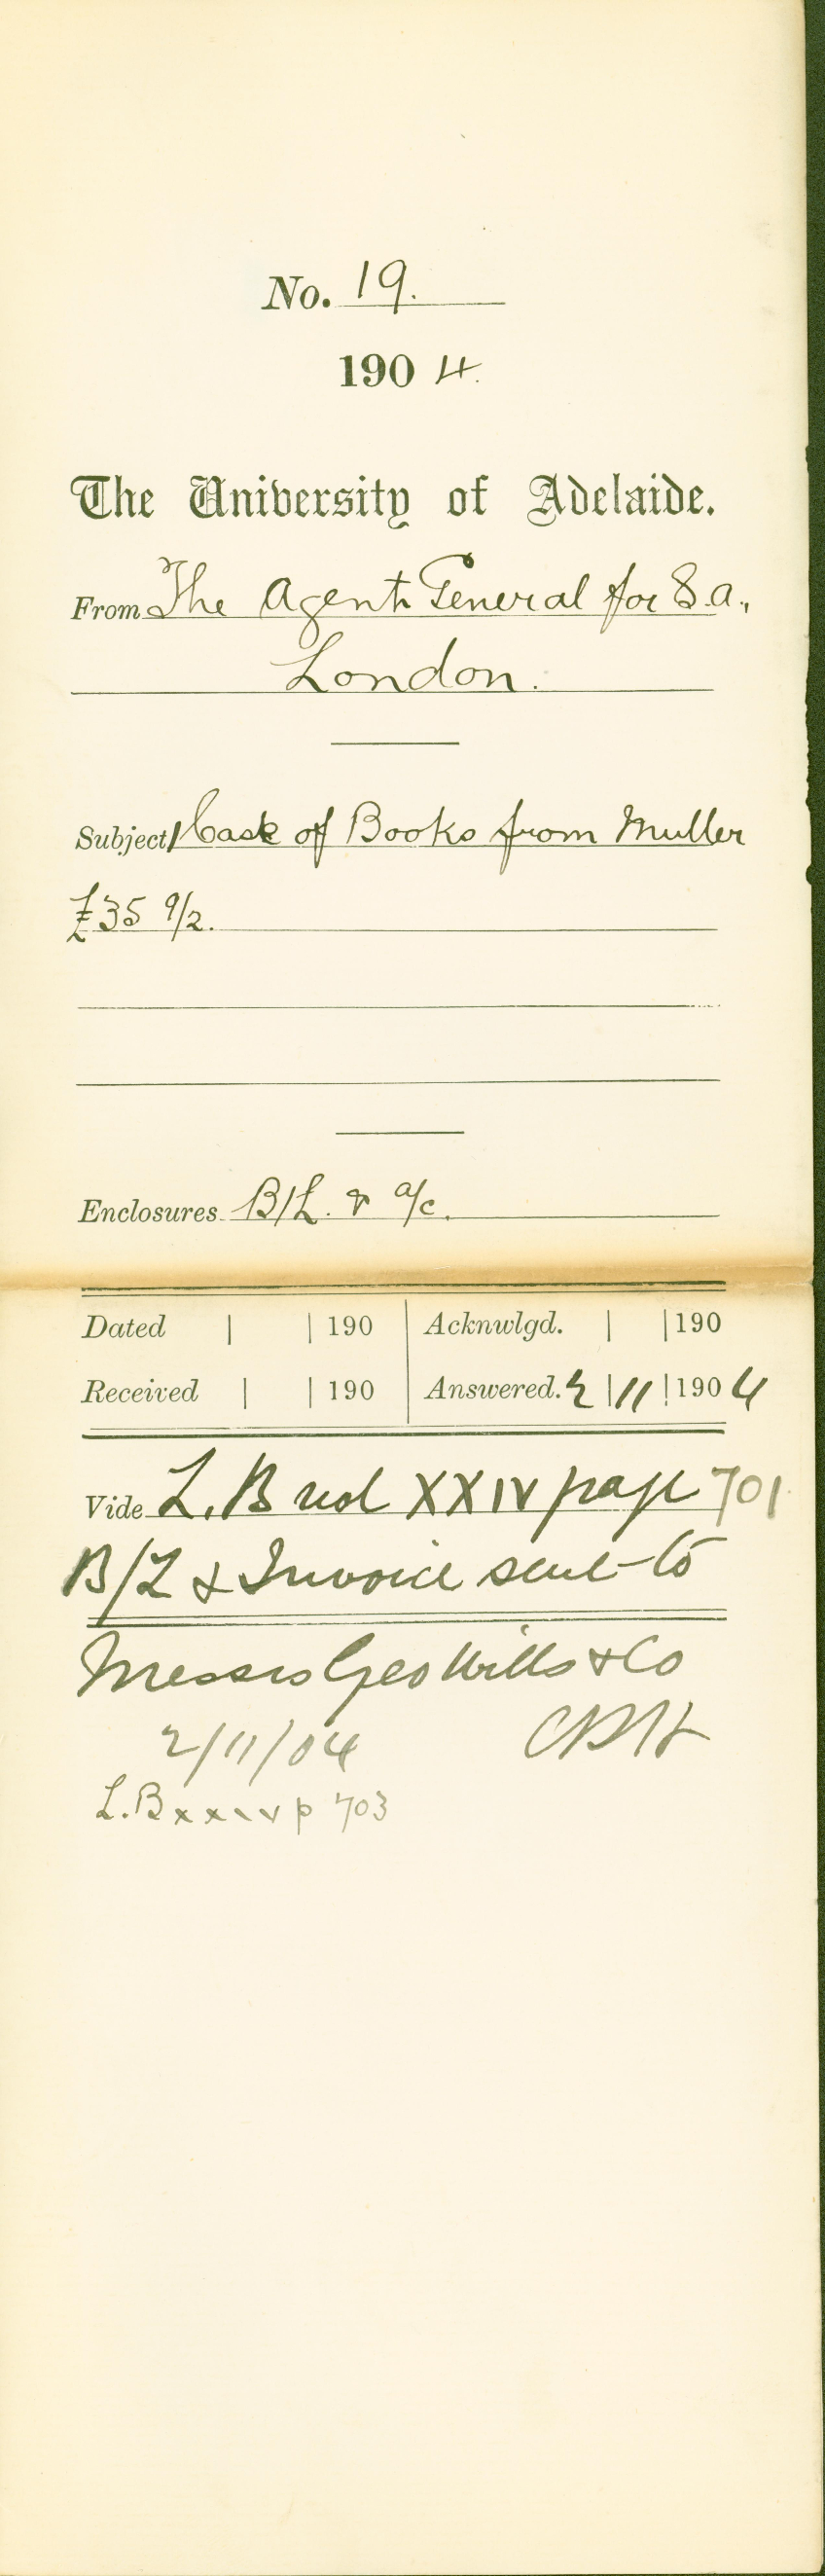 No. 19.
1904.
The University of Adelaide.
From The Agent General for S.A.,
London.
Subject 1 Case of Books from Muller
£35 9/2.
Enclosures B/L. & a/c.
Dated | | 190 Acknwlgd. | | 190
Received | | 190 Answered. 2 | 11 | 1904
Vide L.B vol XXIV page 701
B/L & Invoice sent to
Messrs Geo Wills & Co
2/11/04 CRH
L.B xxiv p 703